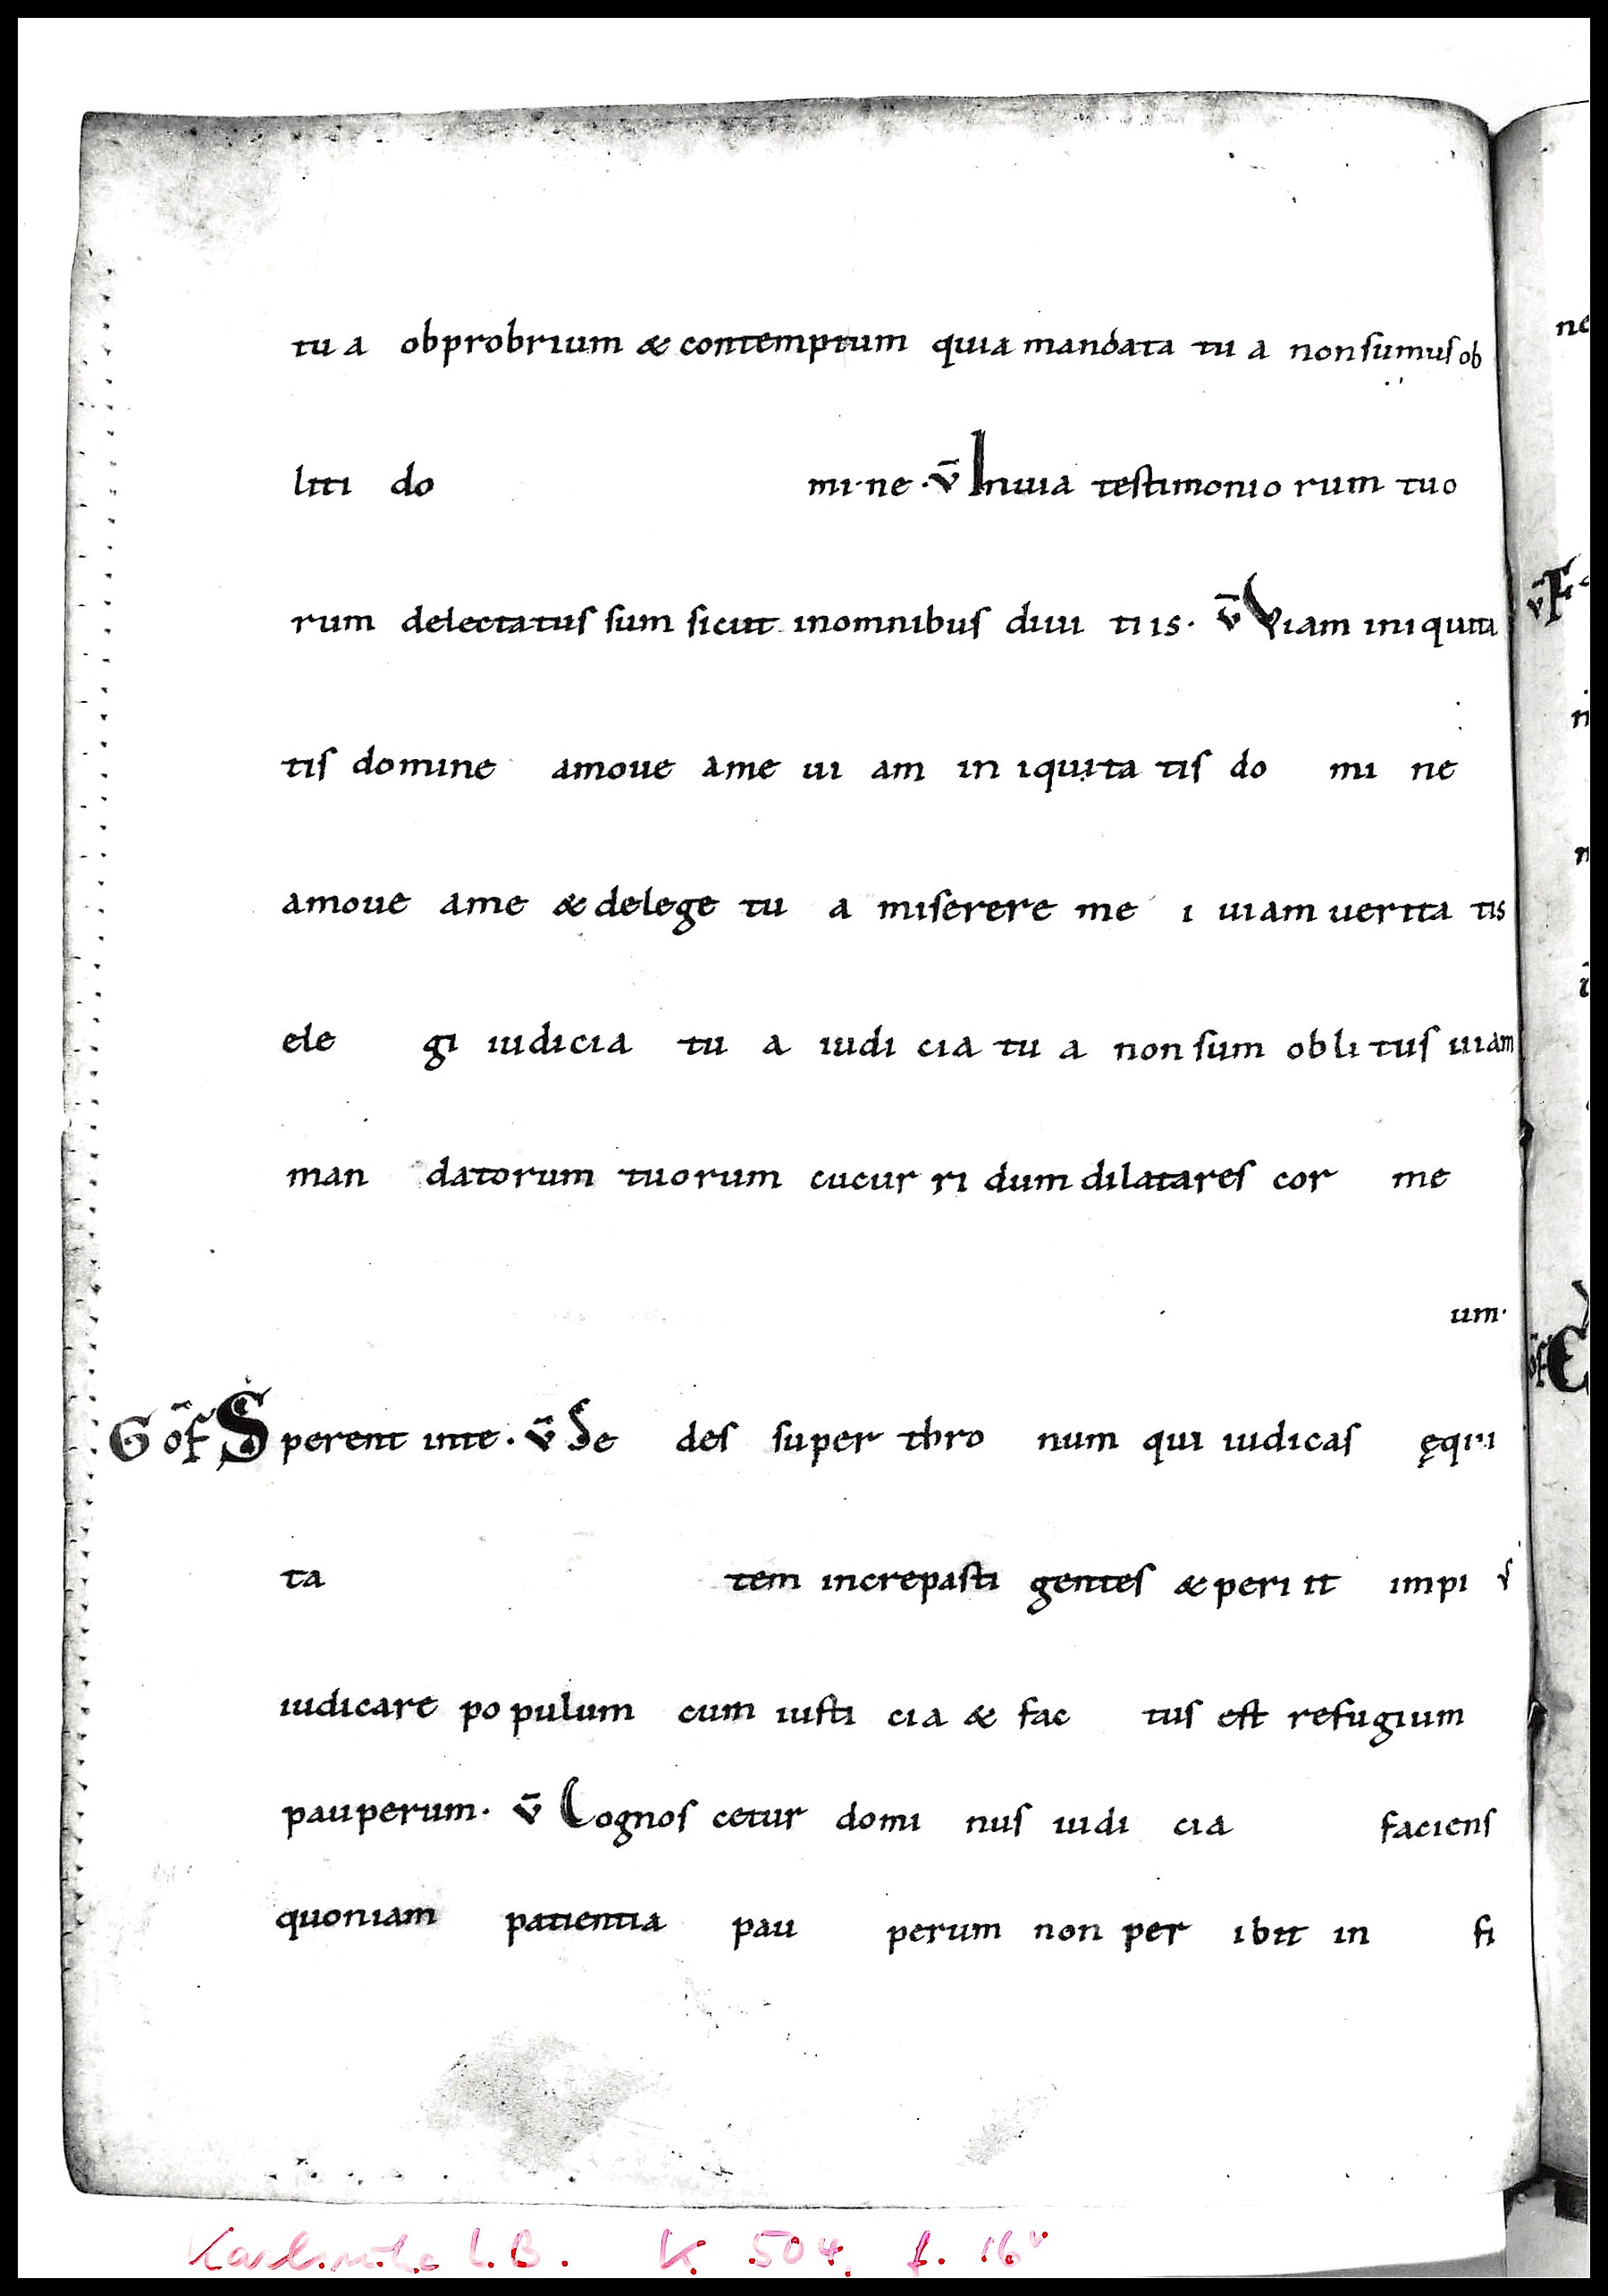 tu a obprobrium & contemptum quia mandata tu a non sumus ob
liti do mi ne · v̄ Inuia testimonio rum tuo
rum delectatus sum sicut inomnibus diui ti is · v̄ Viam ini quita
tis domine amoue ame ui am in iquita tis do mi ne
amoue ame & delege tu a miserere me i uiam uerita tis
ele gi iudicia tu a iudi cia tu a non sum obli tus uiam
man datorum tuorum cucur ri dum dilatares cor me
um·
G of̄ Sperent inte · v̄ Se des super thro num qui iudicas ęqui
ta tem increpasti gentes & peri it impi s
iudicare po pulum cum iusti cia & fac tus est refugium
pauperum · v̄ Cognos cetur domi nus iudi cia faciens
quoniam patientia pau perum non per ibit in fi
Karlsruhe L.B. K. 504, f. 16v